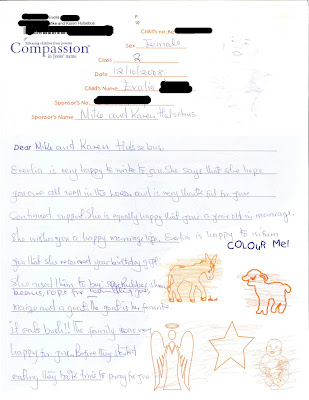 Mike and Karen Hulsebus
Child's No.
Releasing children from poverty
Compassion
in Jesus' name
Sex Female
Class 2
Date 12/10/2008
Child's Name: Evalin
Sponsor's No.
Sponsor's Name Mike and Karen Hulsebus
Dear Mike and Karen Hulsebus.
is very happy to write to you. She says that she hope
you are all well in the and is very thankful for your
Continued support. She is equally happy that your a year old in marriage.
She wishes you a happy marriage life. is happy to inform
COLOUR ME!
you that she received your birthday gift.
She used them to buy Rubber shoes
beans, rope for
Maize and a goat. The goat is her favourite
it eats book!!! The family was very
happy for you. Before they started
eating they took time to pray for you.